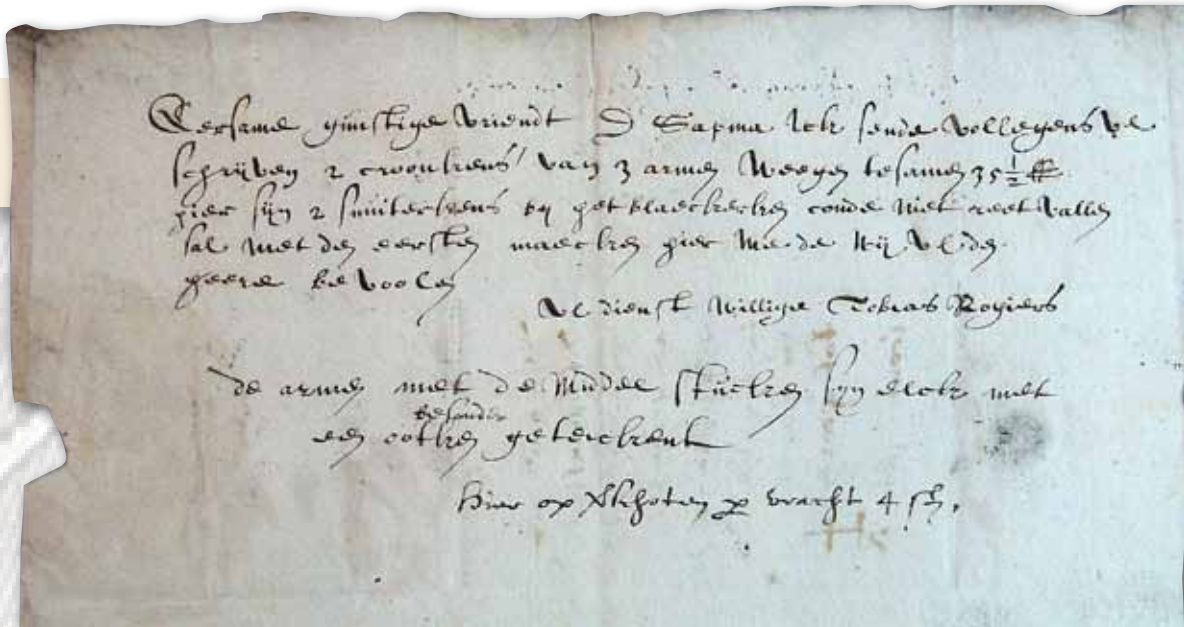 Eersame gunstige vriendt S Sapma Ick sende vollegens vl
schrijven 2 croonkens van 3 armen weegen tesamen 35 1/2 ℔
hier sijn 2 snuiterkens bij het blaeckerken conde niet reet vallen
sal met den eersten maecken hier mede sijt vl den
heere bevoolen
vl dienst willige Tobias Rogiers
de armen met de middel stucken sijn elck met
besonder
een ootken geteickent
hier op verschoten per vracht 4 sch.